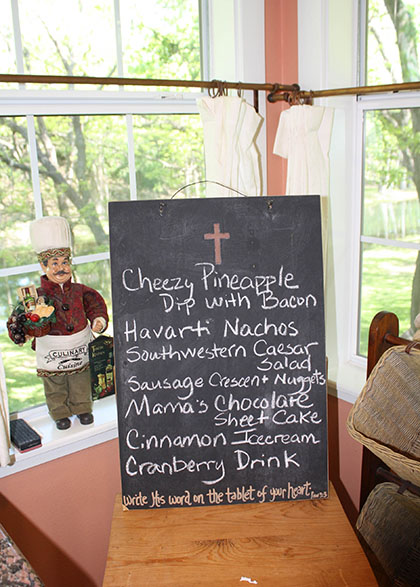 Cheezy Pineapple
Dip with Bacon
Havarti Nachos
Southwestern Caesar
Salad
Sausage Crescent Nuggets
Mama's Chocolate
Sheet Cake
Cinnamon Icecream
Cranberry Drink
write His word on the tablet of your heart.
CULINARY
Cuisine